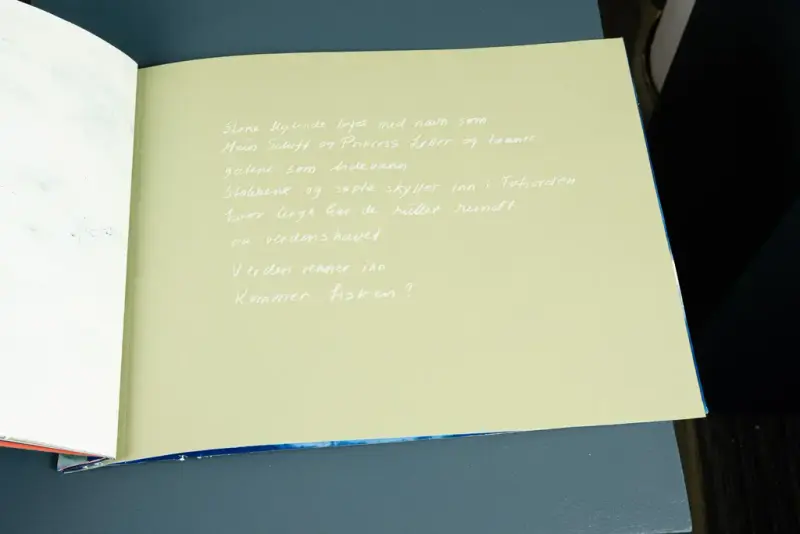 Store flytende byer med navn som
Mein Schiff og Princess fyller og tømmer
gatene som tidevann
Stokkene og søple skyller inn i Tafjorden
hvor lenge har de rullet rundt
på verdenshavet
Verden renner inn
Kommer fisken?